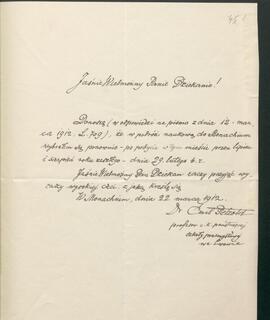 Jaśnie Wielmożny Panie Dziekanie!
Donoszę (w odpowiedzi na pismo z dnia 12. mar-
ca 1912. L. 709), że w podróż naukową do Monachium
wybrałem się ponownie – po pobycie w tym mieście przez lipiec
i sierpień roku zeszłego – dnia 29. lutego b. r.
Jaśnie Wielmożny Pan Dziekan raczy przyjąć wy-
razy wysokiej czci z jaką kreślę się
W Monachium, dnia 22 marca 1912.
Dr
profesor c. k. państwowej
szkoły przemysłowej
we Lwowie